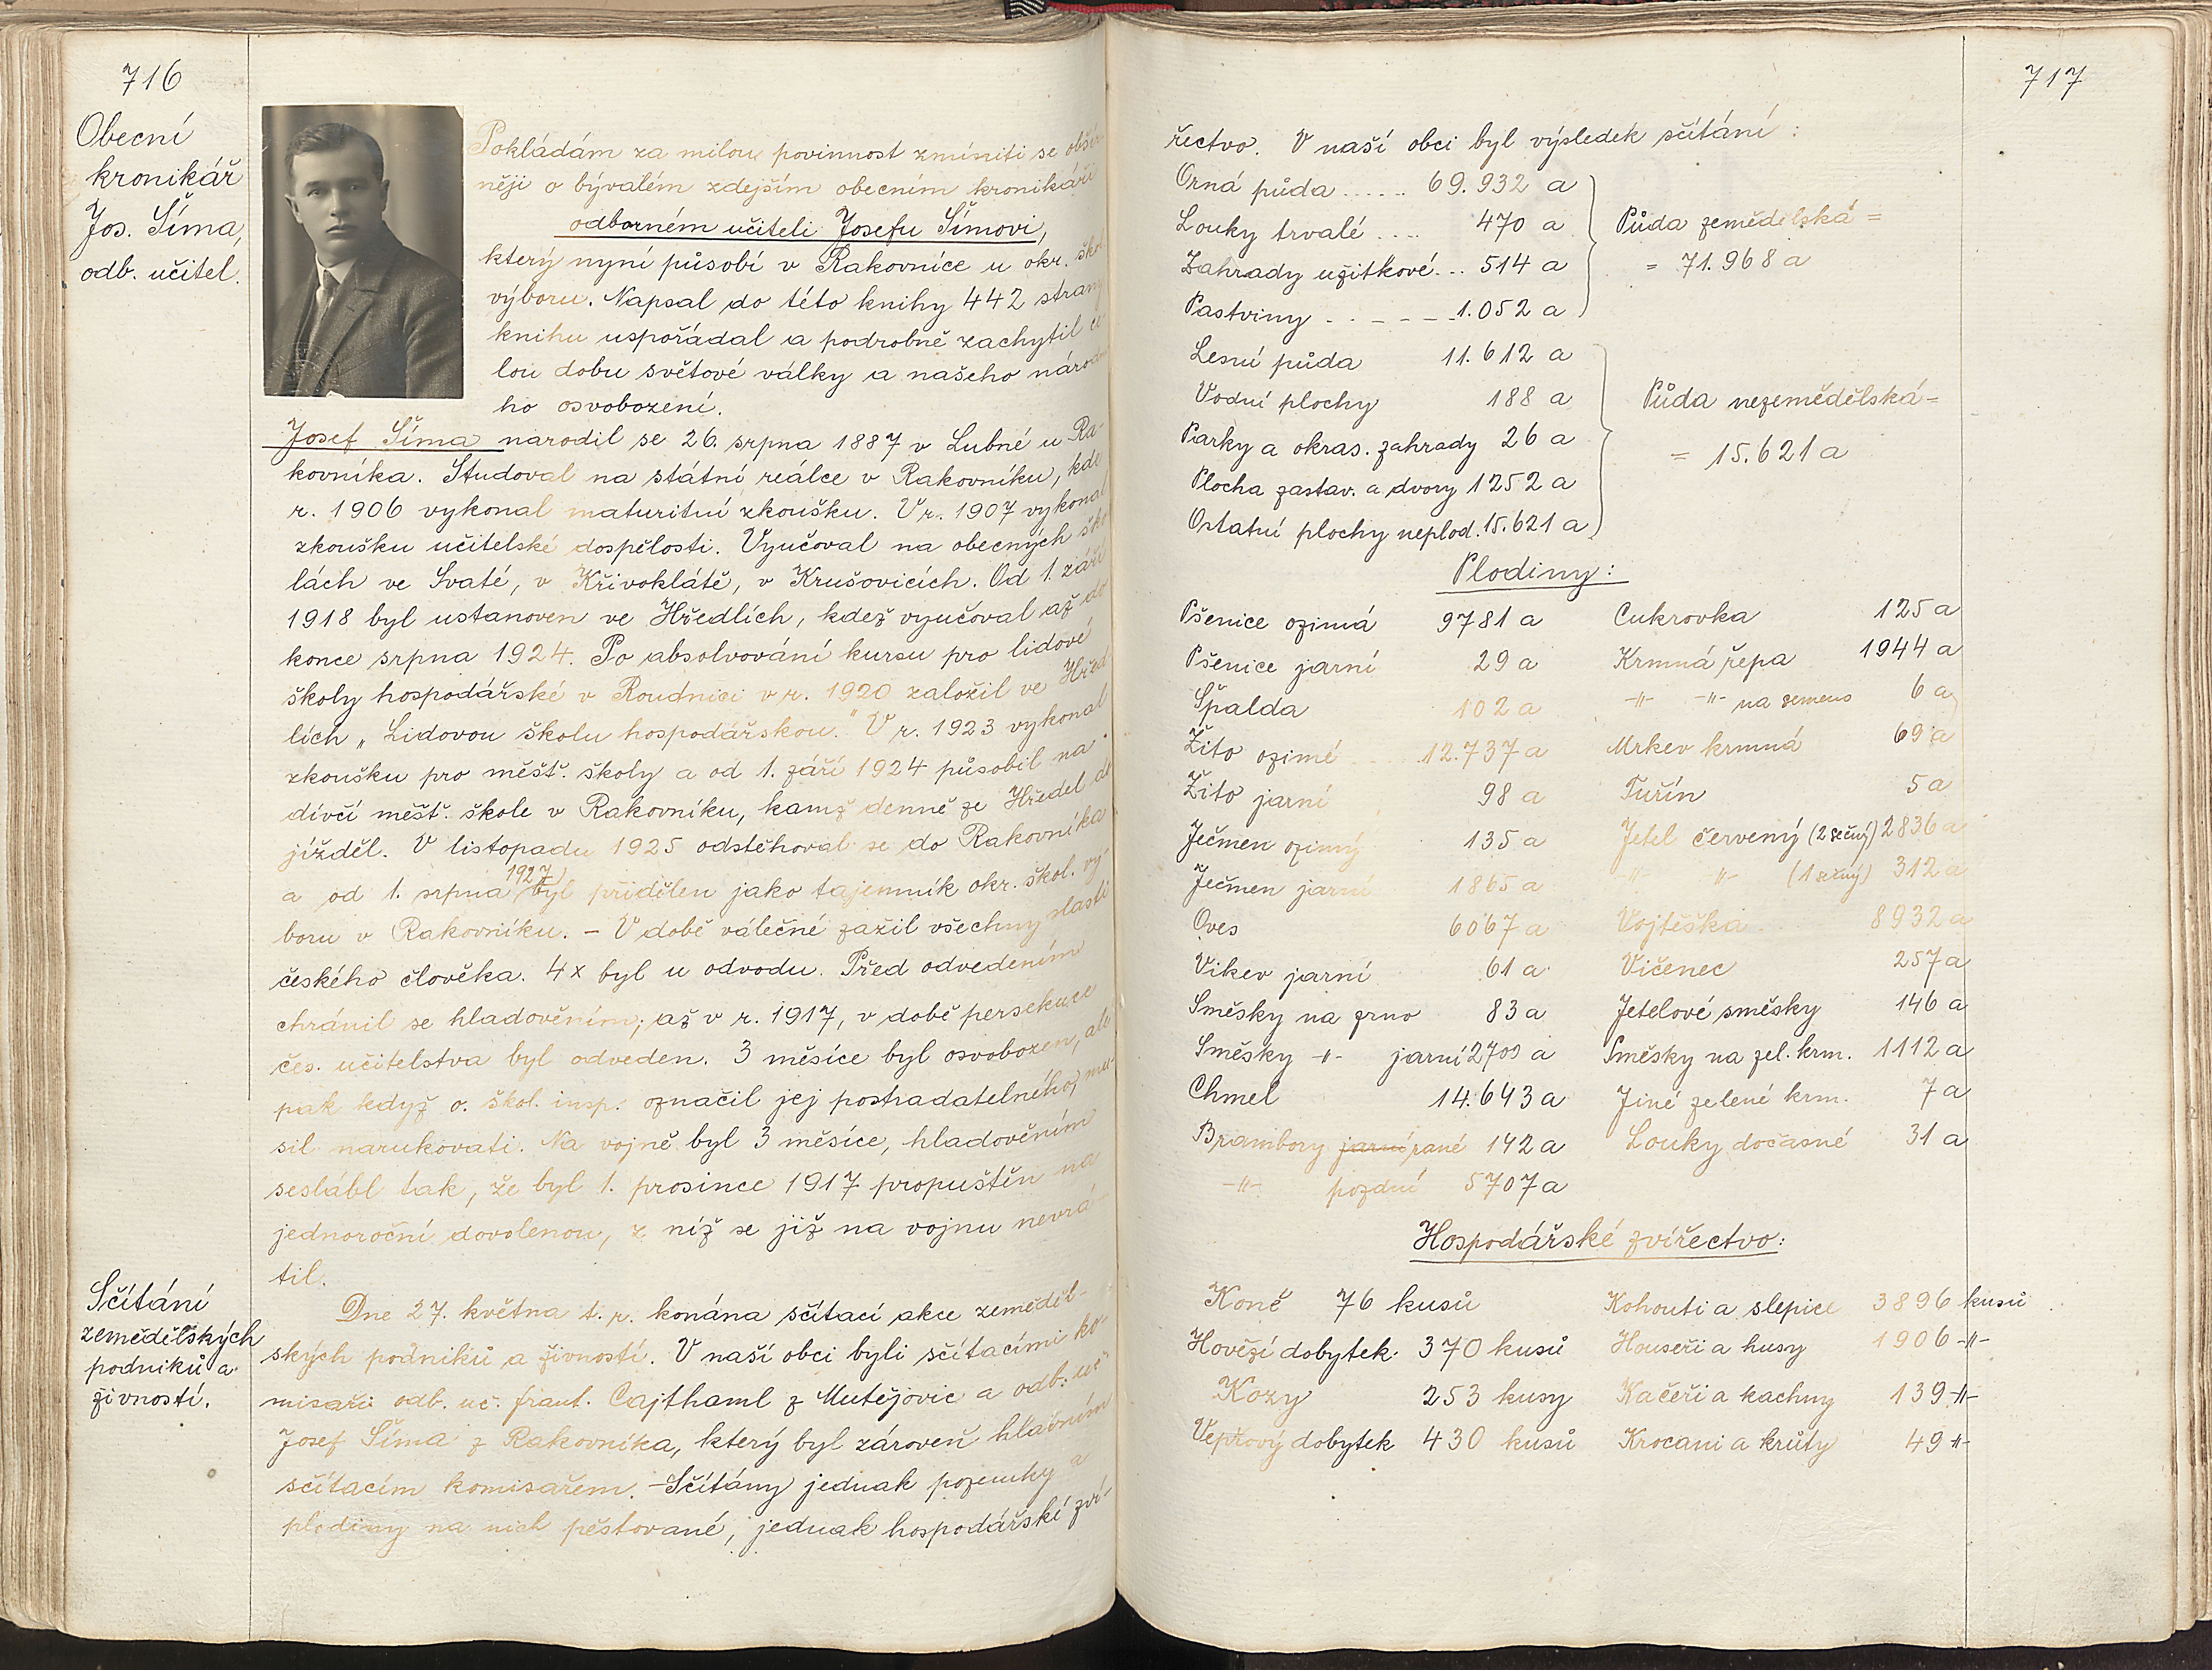 716
Obecní
kronikář
Jos. Šíma,
odb. učitel.
Pokládám za milou povinnost zmíniti se obšír
něji o bývalém zdejším obecním kronikáři
odborném učiteli Josefu Šímovi,
který nyní působí v Rakovníce u okr. škol
výboru. Napsal do této knihy 442 stran,
knihu uspořádal a podrobně zachytil ce
lou dobu světové války a našeho národní
ho osvobození.
Josef Šíma narodil se 26. srpna 1887 v Lubné u Ra-
kovníka. Studoval na státní reálce v Rakovníku, kde
r. 1906 vykonal maturitní zkoušku. V r. 1907 vykonal
zkoušku učitelské dospělosti. Vyučoval na obecných ško
lách ve Svaté, v Křivoklátě, v Krušovicích. Od 1. září
1918 byl ustanoven ve Hředlích, kdež vyučoval až do
konce srpna 1924. Po absolvování kursu pro lidové
školy hospodářské v Roudnici v r. 1920 založil ve Hřed
lích „Lidovou školu hospodářskou." V r. 1923 vykonal
zkoušku pro měšť. školy a od 1. září 1924 působil na
dívčí měšť. škole v Rakovníku, kamž denně ze Hředel do
jížděl. V listopadu 1925 odstěhoval se do Rakovníka
a od 1. srpna 1927 byl přidělen jako tajemník okr. škol. vý-
boru v Rakovníku. – V době válečné zažil všechny slasti
českého člověka. 4x byl u odvodu. Před odvedením
chránil se hladověním; až v r. 1917, v době persekuce
čes. učitelstva byl odveden. 3 měsíce byl osvobozen, ale
pak když o. škol. insp. označil jej postradatelného, mu-
sil narukovati. Na vojně byl 3 měsíce, hladověním
seslábl tak, že byl 1. prosince 1917 propuštěn na
jednoroční dovolenou, z níž se již na vojnu nevrá-
til.
Sčítání
zemědělských
podniků a
živností.
Dne 27. května t. r. konána sčítací akce zeměděl-
ských podniků a živností. V naší obci byli sčítacími ko-
misaři odb. uč. frant. Cajthaml z Mutějovic a odb. uč.
Josef Šíma z Rakovníka, který byl zároveň hlavním
sčítacím komisařem. – Sčítány jednak pozemky a
plodiny na nich pěstované, jednak hospodářské zví-
717
řectvo. V naší obci byl výsledek sčítání:
Orná půda ...... 69.932 a
Louky trvalé .... 470 a
Zahrady užitkové... 514 a
Pastviny - - - - - 1.052 a
Půda zemědělská =
= 71.968 a
Lesní půda 11.612 a
Vodní plochy 188 a
Parky a okras. zahrady 26 a
Plocha zastav. a dvory 1252 a
Ostatní plochy neplod. 15.621 a
Půda nezemědělská =
= 15.621 a
Plodiny:
Pšenice ozimá 9781 a Cukrovka 125 a
Pšenice jarní 29 a Krmná řepa 1944 a
Špalda 102 a -〃- -〃- na semeno 6 a
Žito ozimé .... 12.737 a Mrkev krmná 69 a
Žito jarní 98 a Tuřín 5 a
Ječmen ozimý 135 a Jetel červený (2 sečný) 2836 a
Ječmen jarní 1865 a -〃- 〃- (1 sečný) 312 a
Oves 6067 a Vojtěška .... 8932 a
Vikev jarní 61 a Vičenec 257 a
Směsky na zrno 83 a Jetelové směsky 146 a
Směsky -〃- jarní 2709 a Směsky na zel. krm. 1112 a
Chmel 14.643 a Jiné zelené krm. 7 a
Brambory jarní rané 142 a Louky dočasné 31 a
-〃- pozdní 5707 a
Hospodářské zvířectvo:
Koně 76 kusů Kohouti a slepice 3896 kusů
Hovězí dobytek 370 kusů Houseři a husy 1906 -〃-
Kozy 253 kusy Kačeři a kachny 139 -〃-
Vepřový dobytek 430 kusů Krocani a krůty 49 -〃-